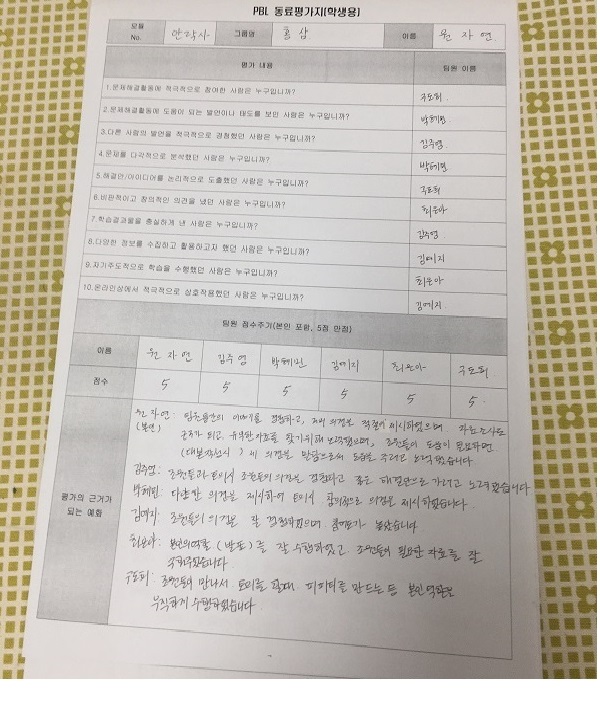 PBL 동료평가지(학생용)
모듈 No. 안락사 그룹명 홍삼 이름 원자연
평가 내용 팀원 이름
1.문제해결활동에 적극적으로 참여한 사람은 누구입니까? 국도희
2.문제해결활동에 도움이 되는 발언이나 태도를 보인 사람은 누구입니까? 박혜민
3.다른 사람의 발언을 적극적으로 경청했던 사람은 누구입니까? 김주영
4.문제를 다각적으로 분석했던 사람은 누구입니까? 박혜민
5.해결안/아이디어를 논리적으로 도출했던 사람은 누구입니까? 국도희
6.비판적이고 창의적인 의견을 냈던 사람은 누구입니까? 최은아
7.학습결과물을 충실하게 낸 사람은 누구입니까? 김주영
8.다양한 정보를 수집하고 활용하고자 했던 사람은 누구입니까? 김예지
9.자기주도적으로 학습을 수행했던 사람은 누구입니까? 최은아
10.온라인상에서 적극적으로 상호작용했던 사람은 누구입니까? 김예지
팀원 점수주기(본인 포함, 5점 만점)
이름 원자연 김주영 박혜민 김예지 최은아 국도희
점수 5 5 5 5 5 5
평가의 근거가 되는 예화
원자연: 팀원들간의 이야기를 경청하고, 저의 의견을 적절히 제시하였으며 자료조사도
(본인) 근거가 되고 유익한 자료를 찾기위해 노력했으며, 조원들이 도움이 필요하면
(대본작성시) 제 의견을 말함으로써 도움을 주려고 노력했습니다
김주영: 조원들과 토의시 조원들의 의견을 경청하고 좋은 해결안으로 가려고 노력했습니다
박혜민: 다양한 의견을 제시하여 토의시 창의적으로 의견을 제시하였습니다.
김예지: 조원들의 의견을 잘 경청하였으며 참여도가 높았습니다
최은아: 본인의 역할(발표)를 잘 수행하였고 조원들의 필요한 자료를 잘
국도희: 조원들이 만나서 토의를 할때 피피티를 만드는 등 본인 역할을
묵직하게 수행하였습니다.